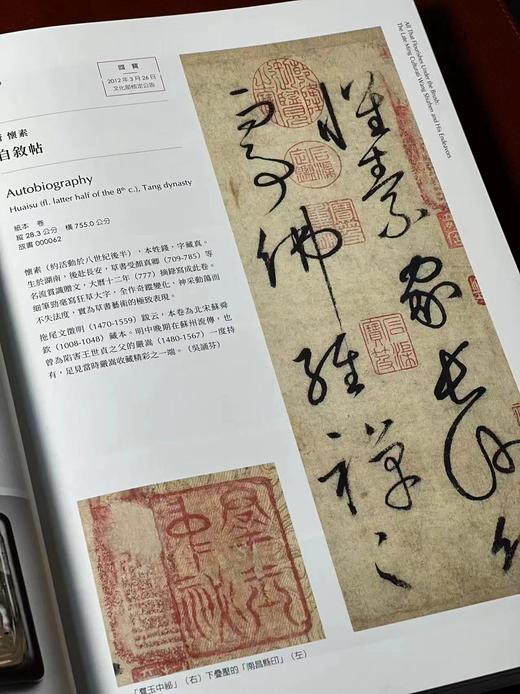 國 寶
2012 年 3 月 26 日
文化部核定公告
懷素
自敘帖
Autobiography
Huaisu (fl. latter half of the 8th c.), Tang dynasty
紙本 卷
縱 28.3 公分 橫 755.0 公分
故書 000062
懷素（約活動於八世紀後半），本姓錢，字藏真。
生於湖南，後赴長安，草書受顏真卿（709-785）等
名流賞識贈文，大曆十二年（777）摘錄寫成此卷。
細筆勁毫寫狂草大字，全作奇蹤變化，神采動蕩而
不失法度，實為草書藝術的極致表現。
拖尾文徵明（1470-1559）跋云，本卷為北宋蘇舜
欽（1008-1048）藏本。明中晚期在蘇州流傳，也
曾為陷害王世貞之父的嚴嵩（1480-1567）一度持
有，足見當時嚴嵩收藏精彩之一端。（吳誦芬）
All That Flourishes Under the Brush:
The Late-Ming Culturati Wang Shizhen and His Endeavors
懷素家長沙
幼而事佛經禪之
「羣玉中祕」（右）下疊壓的「南昌縣印」（左）